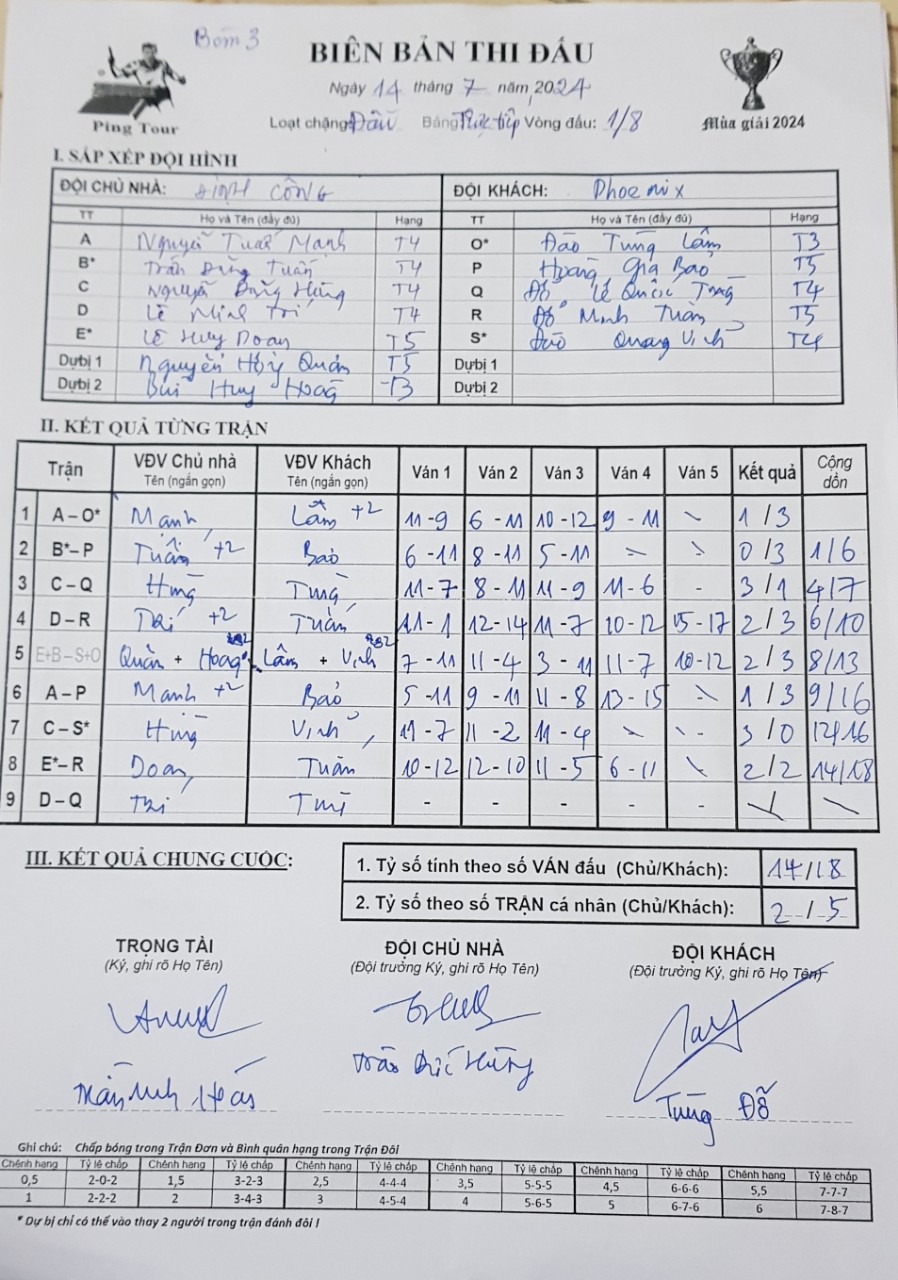 Bom 3
BIÊN BẢN THI ĐẤU
Ngày 14 tháng 7 năm 2024
Ping Tour
Loạt chặng: Đấu Bảng: Trực tiếp Vòng đấu: 1/8
Mùa giải 2024
I. SẮP XẾP ĐỘI HÌNH
ĐỘI CHỦ NHÀ: ĐỊNH CÔNG ĐỘI KHÁCH: Phoenix
TT Họ và Tên (đầy đủ) Hạng TT Họ và Tên (đầy đủ) Hạng
A Nguyễn Tuấn Mạnh T4 O* Đào Tùng Lâm T3
B* Trần Tuấn T4 P Hoàng Gia Bảo T5
C Nguyễn Hùng T4 Q Đỗ Lê Quốc T4
D Lê Minh Trí T4 R Đỗ Minh Tuấn T5
E* Lê Huy Doan T5 S* Đào Quang Vinh T4
Dự bị 1 Nguyễn Quán T5 Dự bị 1
Dự bị 2 Bùi Huy Hoàng T3 Dự bị 2
II. KẾT QUẢ TỪNG TRẬN
Trận VĐV Chủ nhà VĐV Khách Ván 1 Ván 2 Ván 3 Ván 4 Ván 5 Kết quả Cộng dồn
Tên (ngắn gọn) Tên (ngắn gọn)
1 A – O* Mạnh Lâm +2 11 - 9 6 - 11 10 - 12 9 - 11 \ 1 / 3
2 B* – P Tuấn +2 Bảo 6 - 11 8 - 11 5 - 11 \ \ 0 / 3 1/6
3 C – Q Hùng Tùng 11 - 7 8 - 11 11 - 9 11 - 6 - 3 / 1 4/7
4 D – R Trí +2 Tuấn 11 - 1 12 - 14 11 - 7 10 - 12 15 - 17 2 / 3 6/10
5 E+B – S+O Quân + Hoàng Lâm + Vinh 7 - 11 11 - 4 3 - 11 11 - 7 10 - 12 2 / 3 8/13
6 A – P Mạnh +2 Bảo 5 - 11 9 - 11 11 - 8 13 - 15 \ 1 / 3 9/16
7 C – S* Hùng Vinh 11 - 7 11 - 2 11 - 4 \ \ 3 / 0 12/16
8 E* – R Doan Tuấn 10 - 12 12 - 10 11 - 5 6 - 11 \ 2 / 2 14/18
9 D – Q Trí - - - - - \ \
III. KẾT QUẢ CHUNG CUỘC:
1. Tỷ số tính theo số VÁN đấu (Chủ/Khách): 14/18
2. Tỷ số theo số TRẬN cá nhân (Chủ/Khách): 2 / 5
TRỌNG TÀI ĐỘI CHỦ NHÀ ĐỘI KHÁCH
(Ký, ghi rõ Họ Tên) (Đội trưởng Ký, ghi rõ Họ Tên) (Đội trưởng Ký, ghi rõ Họ Tên)
Trần Hùng Tùng Đỗ
Ghi chú: Chấp bóng trong Trận Đơn và Bình quân hạng trong Trận Đôi
Chênh hạng Tỷ lệ chấp Chênh hạng Tỷ lệ chấp Chênh hạng Tỷ lệ chấp Chênh hạng Tỷ lệ chấp Chênh hạng Tỷ lệ chấp Chênh hạng Tỷ lệ chấp
0,5 2-0-2 1,5 3-2-3 2,5 4-4-4 3,5 5-5-5 4,5 6-6-6 5,5 7-7-7
1 2-2-2 2 3-4-3 3 4-5-4 4 5-6-5 5 6-7-6 6 7-8-7
* Dự bị chỉ có thể vào thay 2 người trong trận đánh đôi !